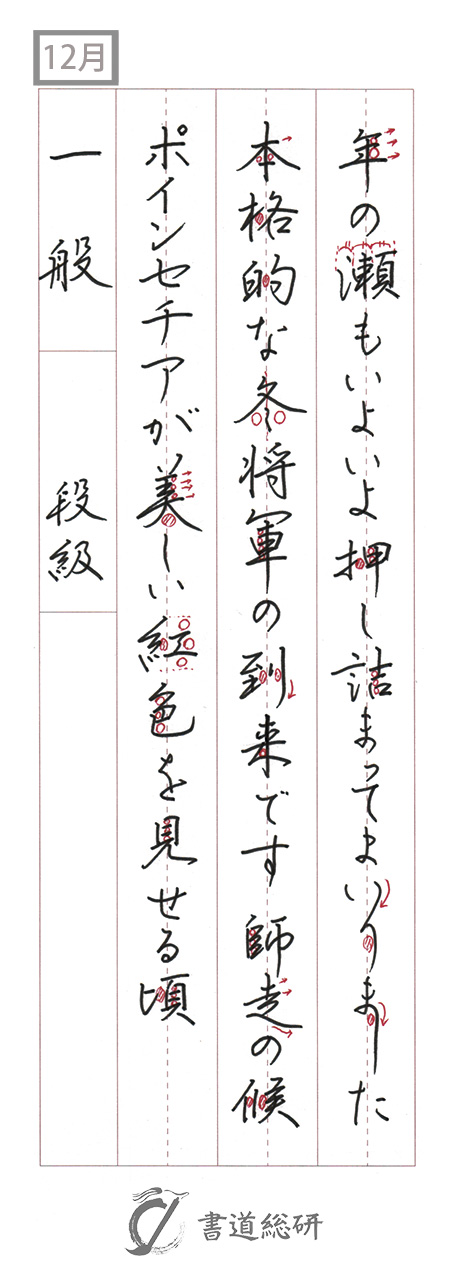 12月
年の瀬もいよいよ押し詰まってまいりました
本格的な冬将軍の到来です 師走の候
ポインセチアが美しい紅色を見せる頃
一般
段級
書道総研